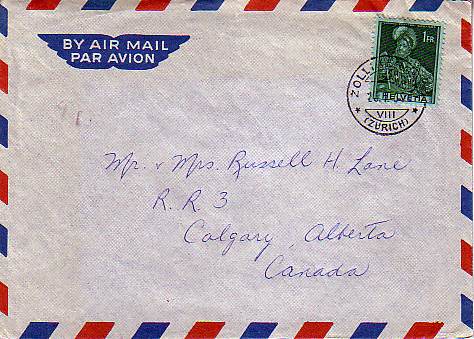 BY AIR MAIL
PAR AVION
1 FR
HELVETIA
VIII
(ZÜRICH)
Mr. & Mrs. Russell H. Lane
R. R. 3
Calgary, Alberta
Canada